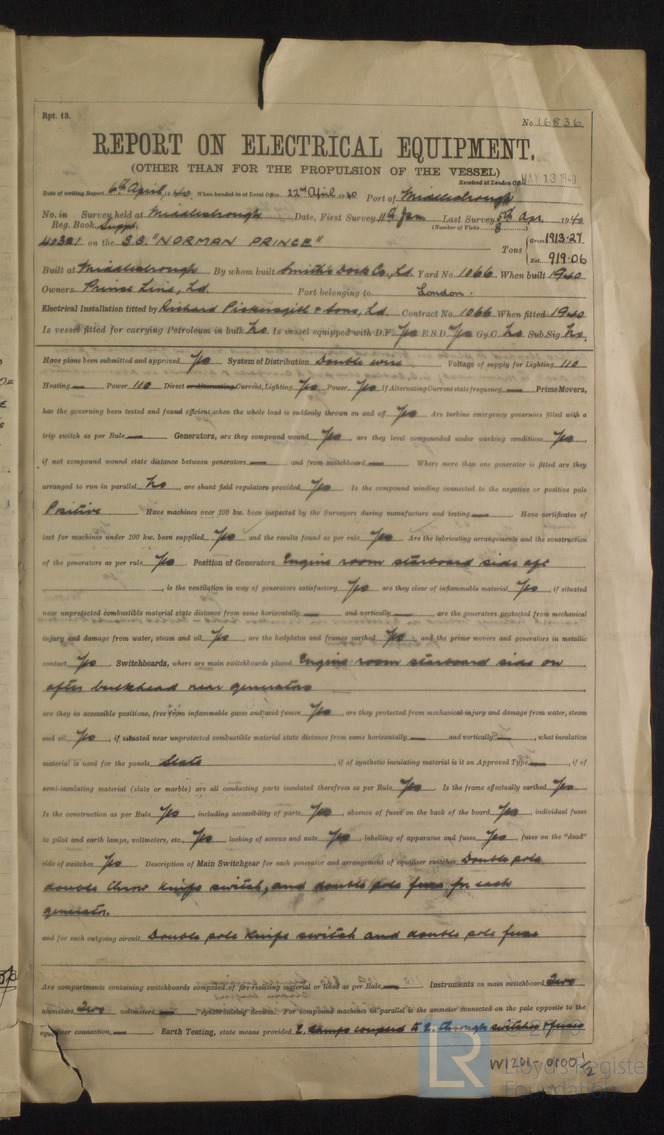 Rpt. 13.
No. 16836
REPORT ON ELECTRICAL EQUIPMENT.
(OTHER THAN FOR THE PROPULSION OF THE VESSEL)
Received at London Office MAY 13 1940
Date of writing Report 6th April 1940 When handed in at Local Office 22nd April 1940 Port of Middlesbrough
No. in Survey held at Middlesbrough Date, First Survey 11th Jan Last Survey 5th Apr 1940
Reg. Book. Suppt. (Number of Visits 8)
40321 on the S.S. "NORMAN PRINCE" Tons { Gross 1913.27
Net 919.06
Built at Middlesbrough By whom built Smith's Dock Co., Ld. Yard No. 1066 When built 1940
Owners Prince Line, Ld. Port belonging to London.
Electrical Installation fitted by Richard Pickersgill & Sons, Ld. Contract No. 1066 When fitted 1940
Is vessel fitted for carrying Petroleum in bulk No. Is vessel equipped with D.F. Yes E.S.D. Yes Gy.C. No Sub.Sig. No.
Have plans been submitted and approved Yes System of Distribution Double wire Voltage of supply for Lighting 110
Heating — Power 110 Direct or Alternating Current, Lighting Yes Power Yes If Alternating Current state frequency — Prime Movers,
has the governing been tested and found efficient when the whole load is suddenly thrown on and off Yes Are turbine emergency governors fitted with a
trip switch as per Rule — Generators, are they compound wound Yes, are they level compounded under working conditions Yes,
if not compound wound state distance between generators — and from switchboard — Where more than one generator is fitted are they
arranged to run in parallel No, are shunt field regulators provided Yes Is the compound winding connected to the negative or positive pole
Positive Have machines over 100 kw. been inspected by the Surveyors during manufacture and testing — Have certificates of
test for machines under 100 kw. been supplied Yes and the results found as per rule Yes Are the lubricating arrangements and the construction
of the generators as per rule Yes Position of Generators Engine room starboard side aft
, is the ventilation in way of generators satisfactory Yes are they clear of inflammable material Yes, if situated
near unprotected combustible material state distance from same horizontally — and vertically — are the generators protected from mechanical
injury and damage from water, steam and oil Yes, are the bedplates and frames earthed Yes, and the prime movers and generators in metallic
contact Yes Switchboards, where are main switchboards placed Engine room starboard side on
after bulkhead near generators
are they in accessible positions, free from inflammable gases and acid fumes Yes, are they protected from mechanical injury and damage from water, steam
and oil Yes, if situated near unprotected combustible material state distance from same horizontally — and vertically —, what insulation
material is used for the panels Slate, if of synthetic insulating material is it an Approved Type —, if of
semi-insulating material (slate or marble) are all conducting parts insulated therefrom as per Rule Yes Is the frame effectually earthed Yes
Is the construction as per Rule Yes, including accessibility of parts Yes, absence of fuses on the back of the board Yes, individual fuses
to pilot and earth lamps, voltmeters, etc. Yes locking of screws and nuts Yes labelling of apparatus and fuses Yes fuses on the "dead"
side of switches Yes Description of Main Switchgear for each generator and arrangement of equaliser switches Double pole
double throw knife switch, and double pole fuse for each
generator.
and for each outgoing circuit Double pole knife switch and double pole fuse
Are compartments containing switchboards composed of fire-resisting material or lined as per Rule — Instruments on main switchboard Two
ammeters Two voltmeters — synchronising devices. For compound machines in parallel is the ammeter connected on the pole opposite to the
equaliser connection — Earth Testing, state means provided E. Lamps coupled to E. through switches & fuses
W1201-0100 1/2
LR
Lloyd's Register
Foundation